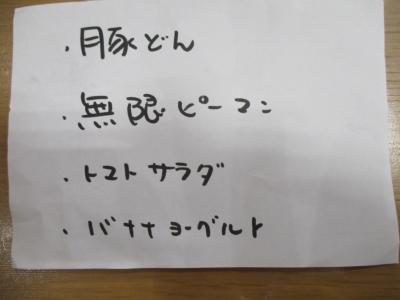 ・豚どん
・無限ピーマン
・トマトサラダ
・バナナヨーグルト